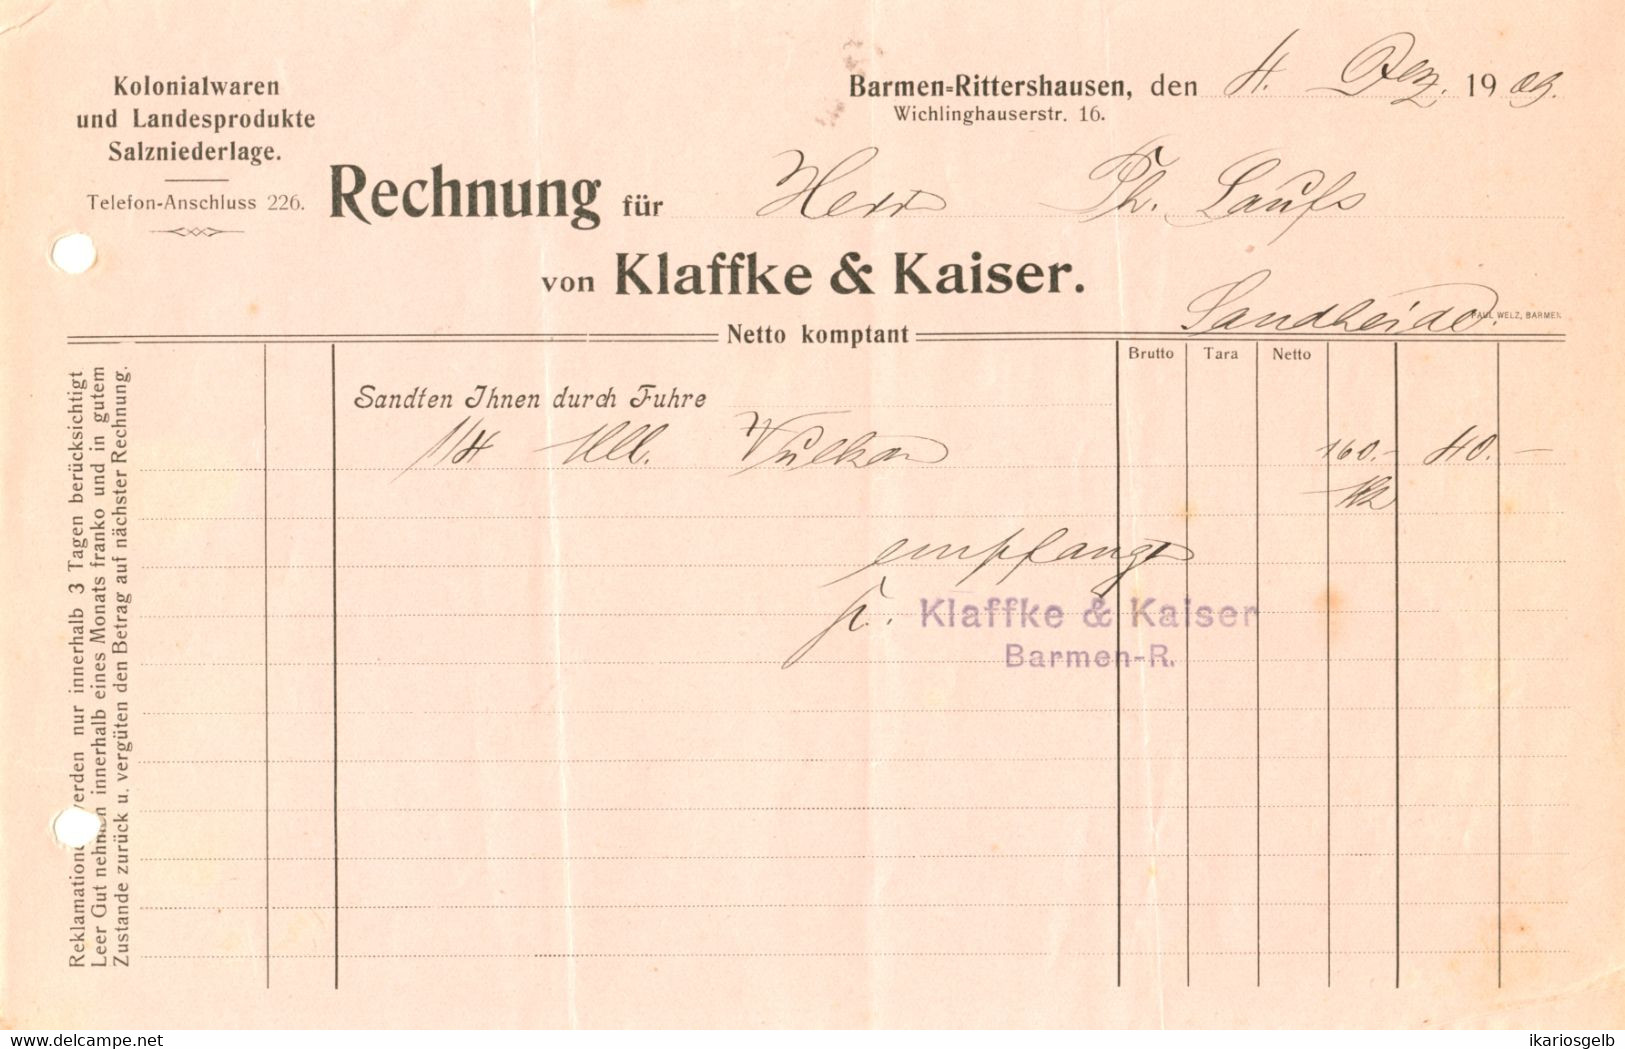 Kolonialwaren
und Landesprodukte
Salzniederlage.
Telefon-Anschluss 226.
Barmen=Rittershausen, den 4. Dez. 1909.
Wichlinghauserstr. 16.
Rechnung für Herr Th. Laufs
von Klaffke & Kaiser.
Sandheide.
PAUL WELZ, BARMEN
Netto komptant
Brutto Tara Netto
Sandten Ihnen durch Fuhre
1/4 Mll. Vulkan 160.- 40.-
empfangen
p. Klaffke & Kaiser
Barmen-R.
Reklamationen werden nur innerhalb 3 Tagen berücksichtigt
Leer Gut nehmen innerhalb eines Monats franko und in gutem
Zustande zurück u. vergüten den Betrag auf nächster Rechnung.
www.delcampe.net
ikariosgelb